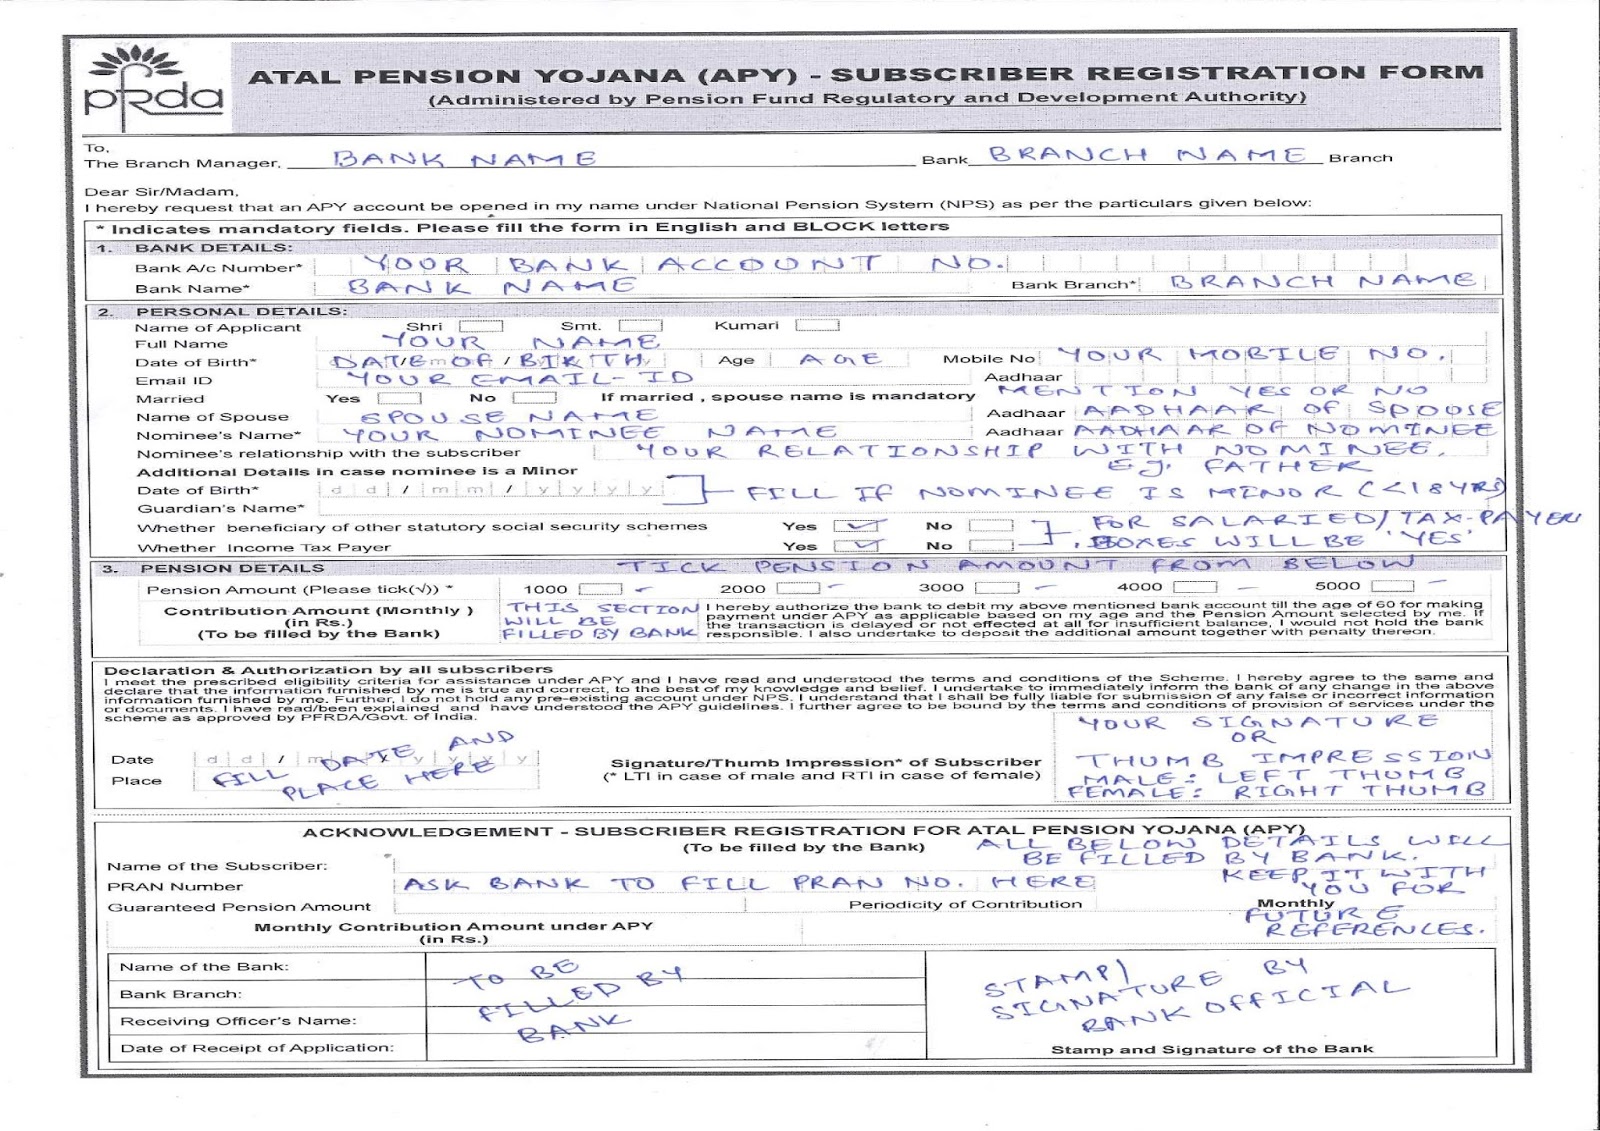 pfrda
ATAL PENSION YOJANA (APY) - SUBSCRIBER REGISTRATION FORM
(Administered by Pension Fund Regulatory and Development Authority)
To,
The Branch Manager, BANK NAME Bank BRANCH NAME Branch
Dear Sir/Madam,
I hereby request that an APY account be opened in my name under National Pension System (NPS) as per the particulars given below:
* Indicates mandatory fields. Please fill the form in English and BLOCK letters
1. BANK DETAILS:
Bank A/c Number* YOUR BANK ACCOUNT NO.
Bank Name* BANK NAME Bank Branch* BRANCH NAME
2. PERSONAL DETAILS:
Name of Applicant Shri Smt. Kumari
Full Name YOUR NAME
Date of Birth* DATE OF BIRTH Age AGE Mobile No YOUR MOBILE NO.
Email ID YOUR EMAIL-ID Aadhaar
Married Yes No If married , spouse name is mandatory MENTION YES OR NO
Name of Spouse SPOUSE NAME Aadhaar AADHAAR OF SPOUSE
Nominee's Name* YOUR NOMINEE NAME Aadhaar AADHAAR OF NOMINEE
Nominee's relationship with the subscriber YOUR RELATIONSHIP WITH NOMINEE.
E.g. FATHER
Additional Details in case nominee is a Minor
Date of Birth* d d / m m / y y y y FILL IF NOMINEE IS MINOR (<18 YRS)
Guardian's Name*
Whether beneficiary of other statutory social security schemes Yes ✓ No FOR SALARIED/TAX-PAYER
Whether Income Tax Payer Yes ✓ No BOXES WILL BE 'YES'
3. PENSION DETAILS TICK PENSION AMOUNT FROM BELOW
Pension Amount (Please tick(√)) * 1000 2000 3000 4000 5000
Contribution Amount (Monthly )
(in Rs.)
(To be filled by the Bank)
THIS SECTION
WILL BE
FILLED BY BANK
I hereby authorize the bank to debit my above mentioned bank account till the age of 60 for making
payment under APY as applicable based on my age and the Pension Amount selected by me. If
the transaction is delayed or not effected at all for insufficient balance, I would not hold the bank
responsible. I also undertake to deposit the additional amount together with penalty thereon.
Declaration & Authorization by all subscribers
I meet the prescribed eligibility criteria for assistance under APY and I have read and understood the terms and conditions of the Scheme. I hereby agree to the same and
declare that the information furnished by me is true and correct, to the best of my knowledge and belief. I undertake to immediately inform the bank of any change in the above
information furnished by me. Further, I do not hold any pre-existing account under NPS. I understand that I shall be fully liable for submission of any false or incorrect information
or documents. I have read/been explained and have understood the APY guidelines. I further agree to be bound by the terms and conditions of provision of services under the
scheme as approved by PFRDA/Govt. of India.
Date d d /
Place
FILL DATE AND
PLACE HERE
Signature/Thumb Impression* of Subscriber
(* LTI in case of male and RTI in case of female)
YOUR SIGNATURE
OR
THUMB IMPRESSION
MALE: LEFT THUMB
FEMALE: RIGHT THUMB
ACKNOWLEDGEMENT - SUBSCRIBER REGISTRATION FOR ATAL PENSION YOJANA (APY)
(To be filled by the Bank)
ALL BELOW DETAILS WILL
BE FILLED BY BANK.
KEEP IT WITH
YOU FOR
FUTURE
REFERENCES.
Name of the Subscriber:
PRAN Number ASK BANK TO FILL PRAN NO. HERE
Guaranteed Pension Amount Periodicity of Contribution Monthly
Monthly Contribution Amount under APY
(in Rs.)
Name of the Bank:
Bank Branch:
Receiving Officer's Name:
Date of Receipt of Application:
TO BE
FILLED BY
BANK
STAMP/
SIGNATURE BY
BANK OFFICIAL
Stamp and Signature of the Bank